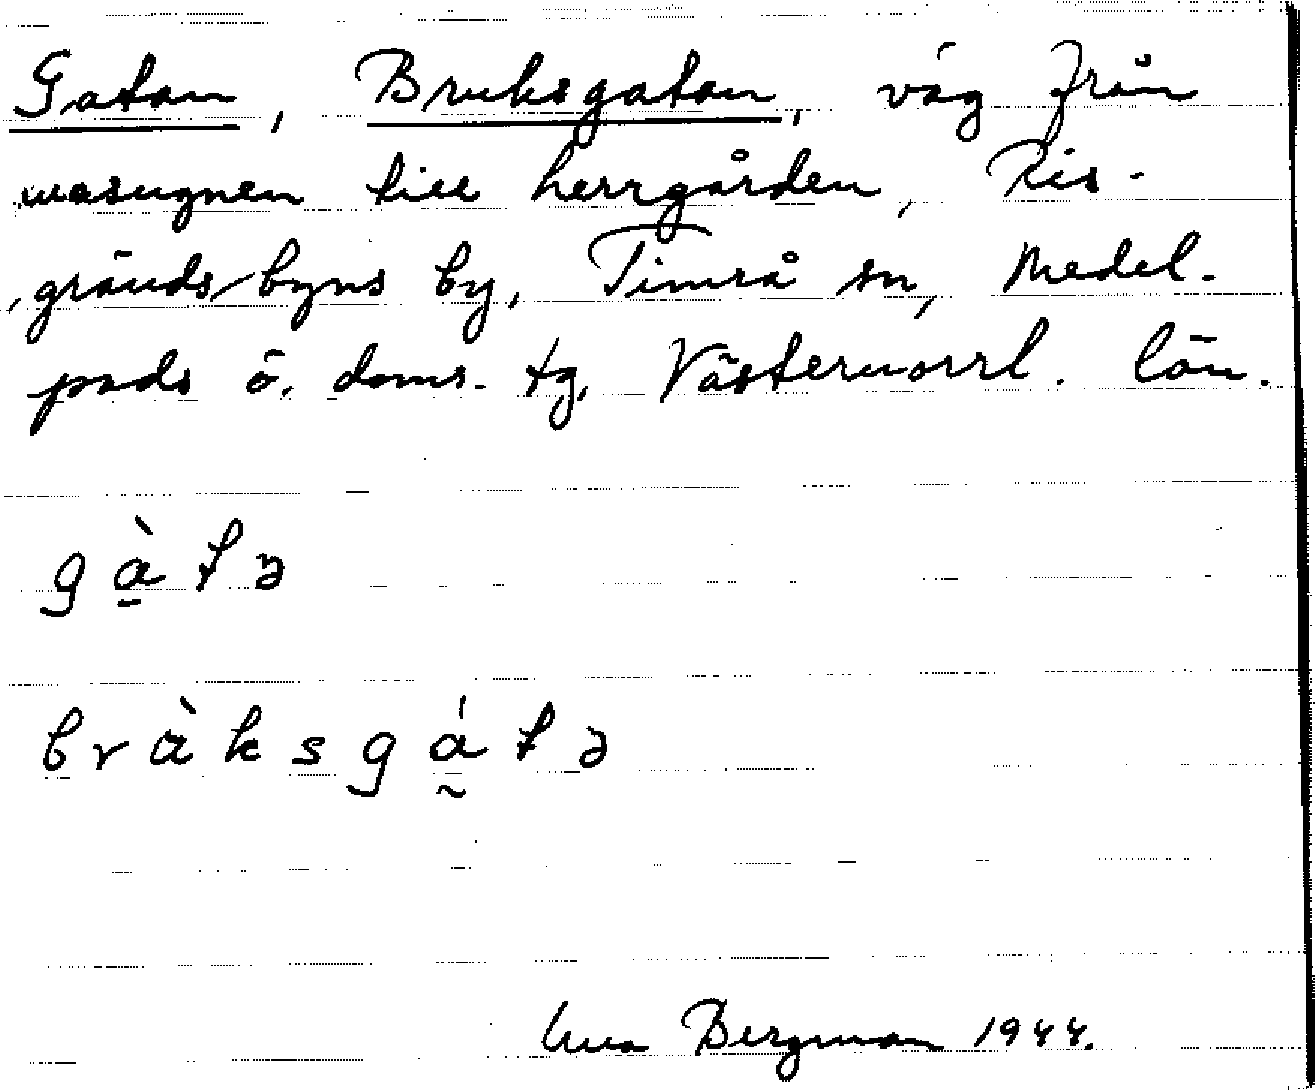 Gatan, Bruksgatan, väg från
masugnen till herrgården, Ris-
grändsbyns by, Timrå sn, Medel-
pads ö. doms. tg, Västernorrl. län.
g à̱ t ə
b r ȁ k s g á̰ t ə
Bergman 1944.